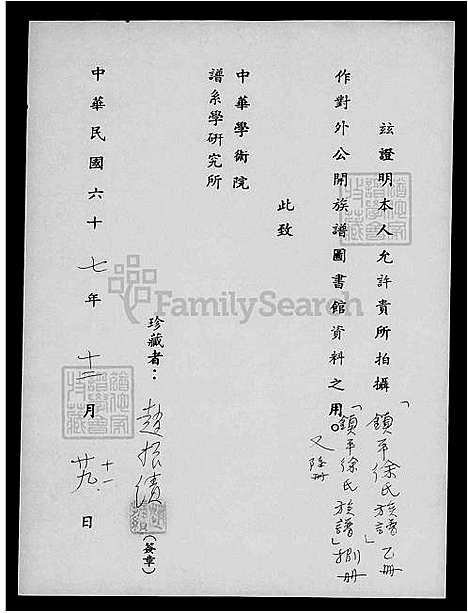 茲證明本人允許貴所拍攝「鎮平徐氏族譜」乙冊
作對外公開族譜圖書館資料之用。「鎮平徐氏族譜」捌冊
又陸冊
此致
中華學術院
譜系學研究所
珍藏者：趙振績
（簽章）
中華民國六十七年十二月廿九日
十一
FamilySearch